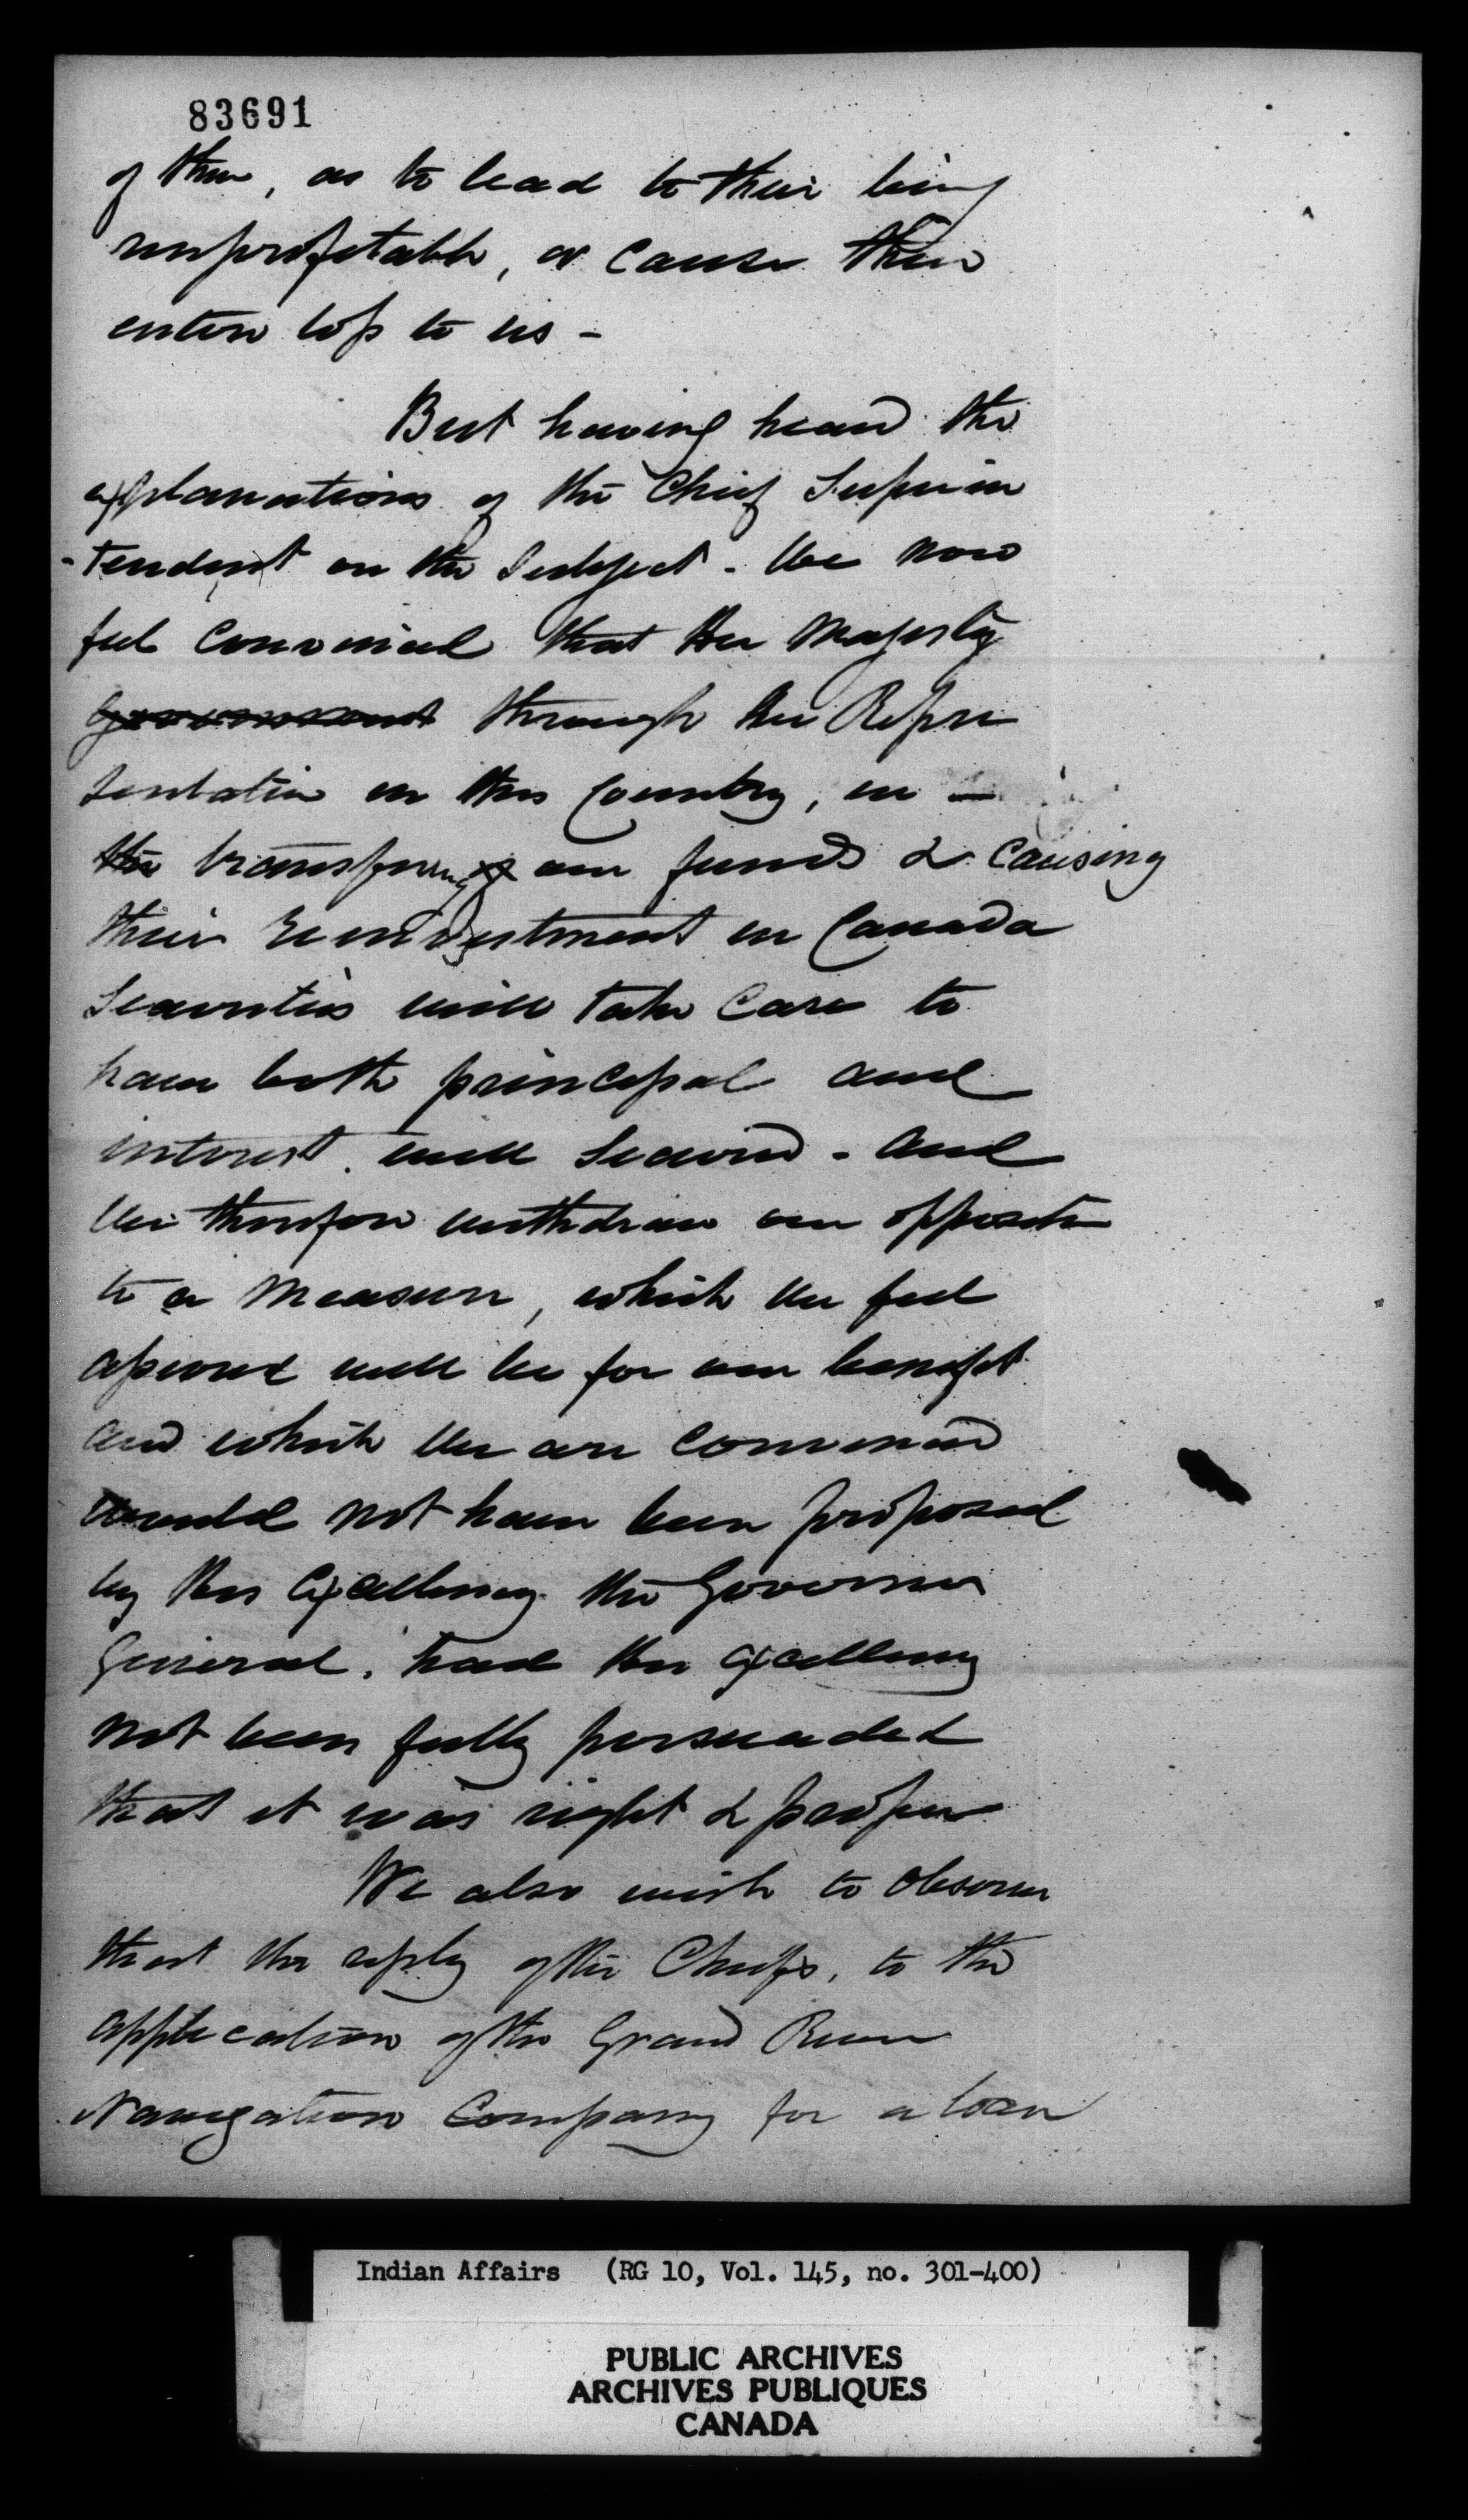 83691
of them, as to lead to their being
unprofitable, or cause their
entire loss to us -
But having heard the
explanations of the Chief Superin
-tendent on the Subject - We now
feel convinced that Her Majesty
government through her Repre
sentative in this Country, in
the transferring of our funds & causing
their reinvestment in Canada
Securities will take care to
have both principal and
interest well secured - and
We therefore withdraw our opposition
to a measure, which we feel
assured will be for our benefit
and which we are convinced
would not have been proposed
by His Excellency the Governor
General, had His Excellency
not been fully persuaded
that it was right & proper
We also wish to observe
that the reply of the Chiefs, to the
application of the Grand River
Navigation Company for a loan
Indian Affairs (RG 10, Vol. 145, no. 301-400)
PUBLIC ARCHIVES
ARCHIVES PUBLIQUES
CANADA